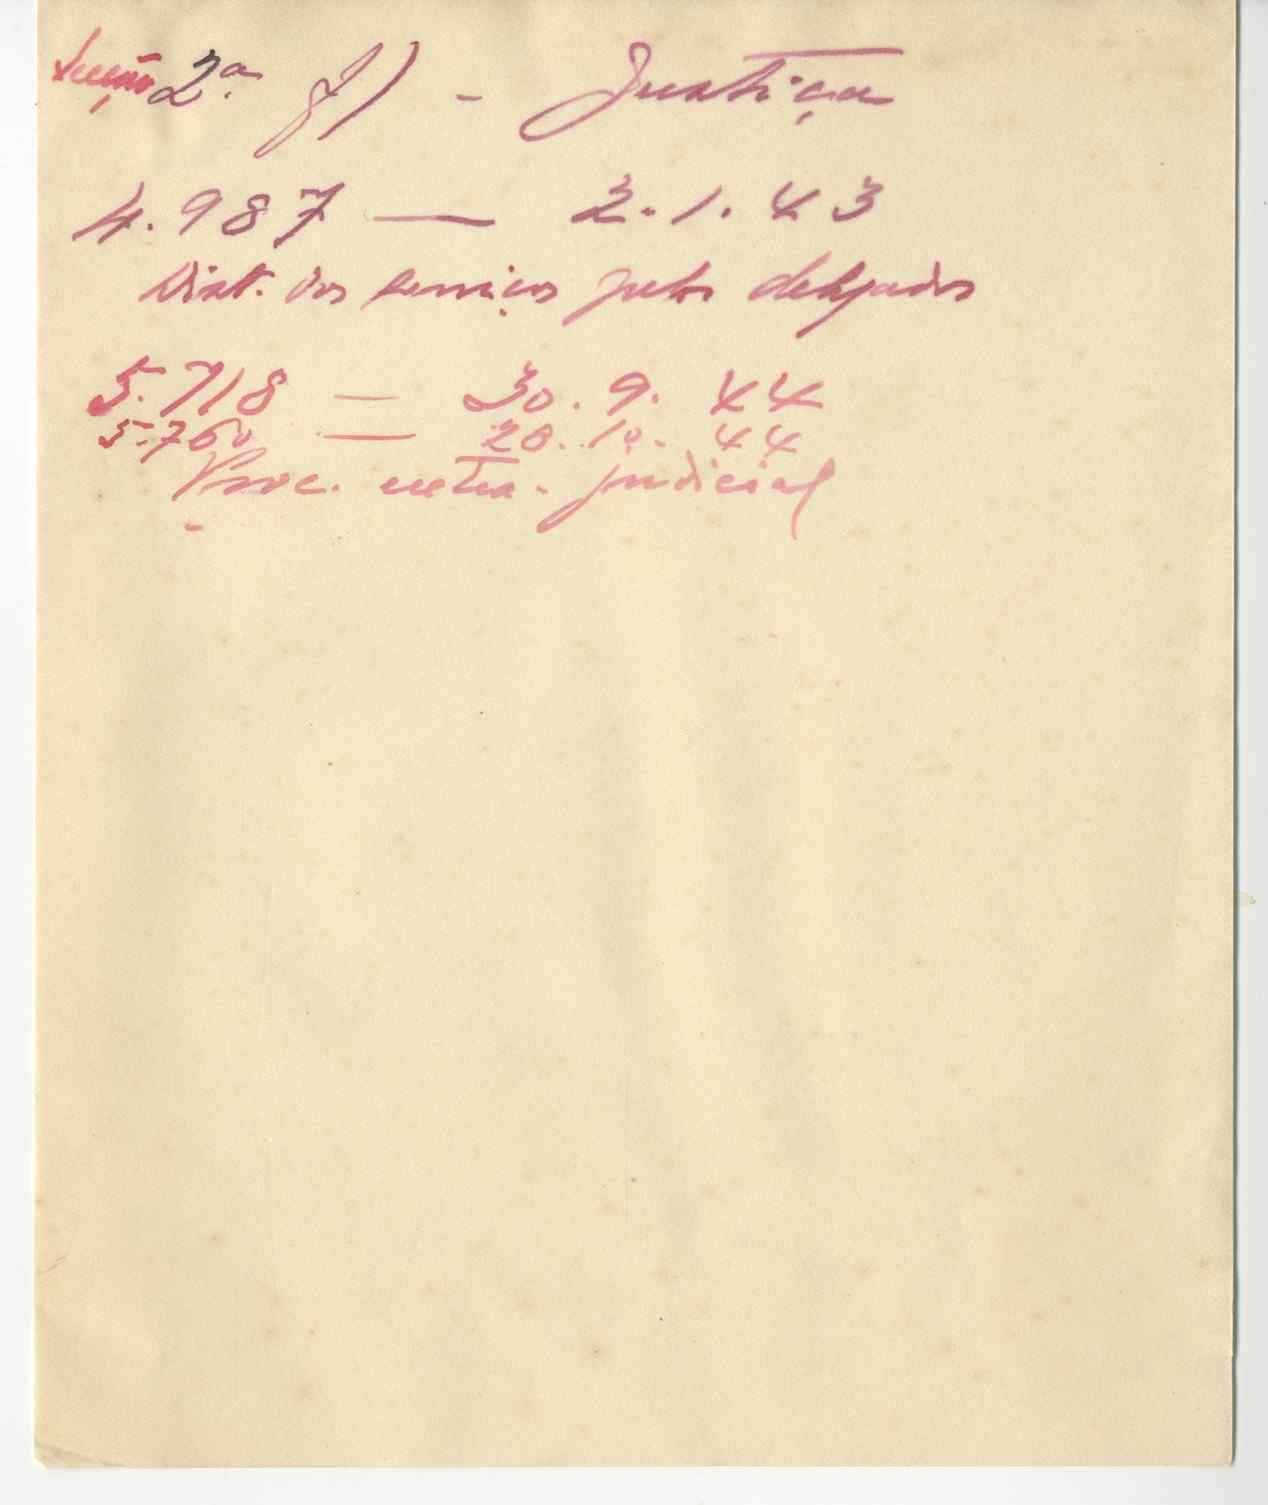 Secção 2ª f) - Justiça
4.987 — 2.1.43
Dist. dos serviços pelos delegados
5.718 — 30.9.44
5.760 — 20.10.44
Proc. extra-judicial